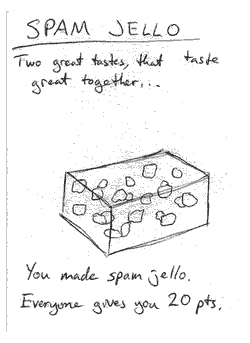 SPAM JELLO
Two great tastes, that taste
great together...
You made spam jello.
Everyone gives you 20 pts.